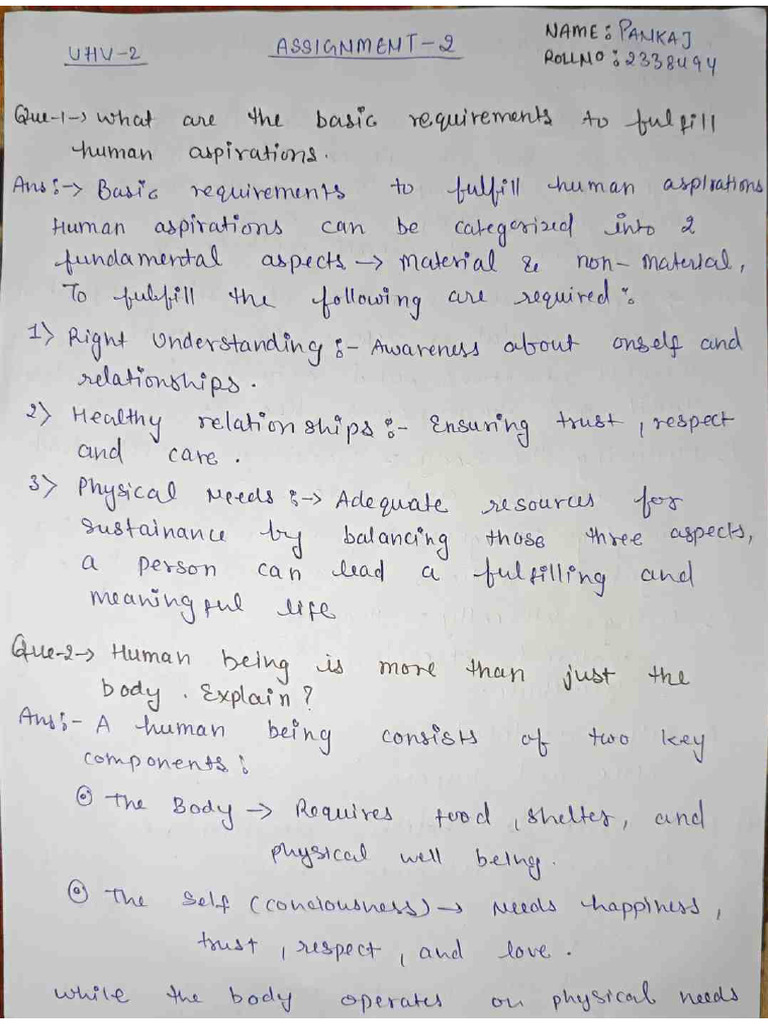 UHV-2
ASSIGNMENT-2
NAME: PANKAJ
ROLLNO: 2338494
Que-1-> What are the basic requirements to fulfill
human aspirations.
Ans:-> Basic requirements to fulfill human aspirations
Human aspirations can be categorized into 2
fundamental aspects -> material & non-material,
To fulfill the following are required:
1) Right Understanding:- Awareness about onself and
relationships.
2) Healthy relationships:- Ensuring trust, respect
and care.
3) Physical Needs:-> Adequate resources for
sustainance by balancing those three aspects,
a person can lead a fulfilling and
meaningful life
Que-2-> Human being is more than just the
body. Explain?
Ans:- A human being consists of two key
components:
⊙ The Body -> Requires food, shelter, and
physical well being.
⊙ The Self (conciousness) -> Needs happiness,
trust, respect, and love.
While the body operates on physical needs